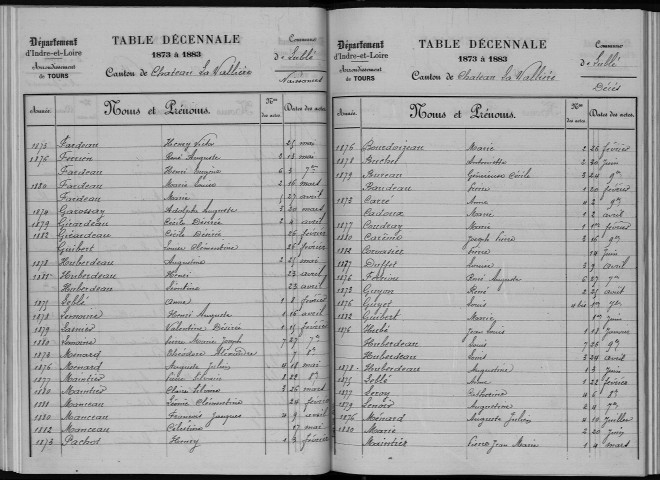 Département
d'Indre-et-Loire
Arrondissement
de TOURS
TABLE DÉCENNALE
1873 à 1883
Canton de Chateau La Vallière
Commune
de Sublé
Naissances
Année. Noms et Prénoms. Nos des actes. Dates des actes.
1875 Fardeau Henry 25 mai
1876 Ferrion René Auguste 2 13 mai
Fardeau Henri Eugène 6 3 7bre
1880 Fardeau Marie Louise 2 16 mars
Fardeau Marie 27 avril
1874 Adolphe Auguste 3 30 mars
1879 Girardeau Cécile Désirée 2 4 avril
1882 Girardeau Cécile Désirée 26 février
Guibert Louise Clémentine 25 février
1873 Huberdeau Augustine 2 25 mai
Huberdeau Henri 23 avril
Huberdeau Léontine 23 avril
1875 Leblé Anne 1 8 février
1878 Lemoine Henri Auguste 1 16 avril
1879 Larnier Valentine Désirée 1 15 février
1880 Lemoine Pierre Marie Joseph 7 27 7bre
1873 Menard Théodore Alexandre 7 8bre
1876 Menard Auguste Julien 4 18 mai
1877 Maintier 8 22 8bre
1880 Maintier 3 26 mars
1881 Manceau Léonie Clémentine 24 février
1880 Manceau François Jacques 4 9 avril
1882 Manceau Célestine 17 mai
1873 Pachot Henry 1 3 février
Département
d'Indre-et-Loire
Arrondissement
de TOURS
TABLE DÉCENNALE
1873 à 1883
Canton de Chateau La Vallière
Commune
de Sublé
Décès
Année. Noms et Prénoms. Nos des actes. Dates des actes.
1876 Bourdoiseau Marie 2 26 février
1878 Brochet Antoinette 2 30 juin
1879 Bureau Cécile 3 24 9bre
Bandeau Pierre 1 20 février
1873 Carré Anne 4 2 9bre
Cadoux Marie 1 2 avril
1877 Coudray Marie 1 1er février
1880 Carême Joseph Pierre 3 16 9bre
1882 Cornilier Pierre 14 juin
1881 Duffet Louise 3 9 avril
1876 Ferrion René Auguste 6 27 7bre
1873 Guyon René 2 25 avril
1876 Guyot Louis 4 bis 1er 7bre
1882 Guibert Marie 1er juin
1876 Hubé Jean Louis 1 18 janvier
Huberdeau Louis 7 26 9bre
Huberdeau Louis 3 24 avril
1878 Huberdeau Augustine 1 3 juin
1875 Leblé Aimé 1 22 février
1877 Leroy Catherine 4 6 8bre
1879 Lenoir Augustine 2 4 7bre
1876 Ménard Auguste Julien 4 10 juillet
1880 Marie 2 20 juin
Maintier Pierre Jean Marie 1 4 mars